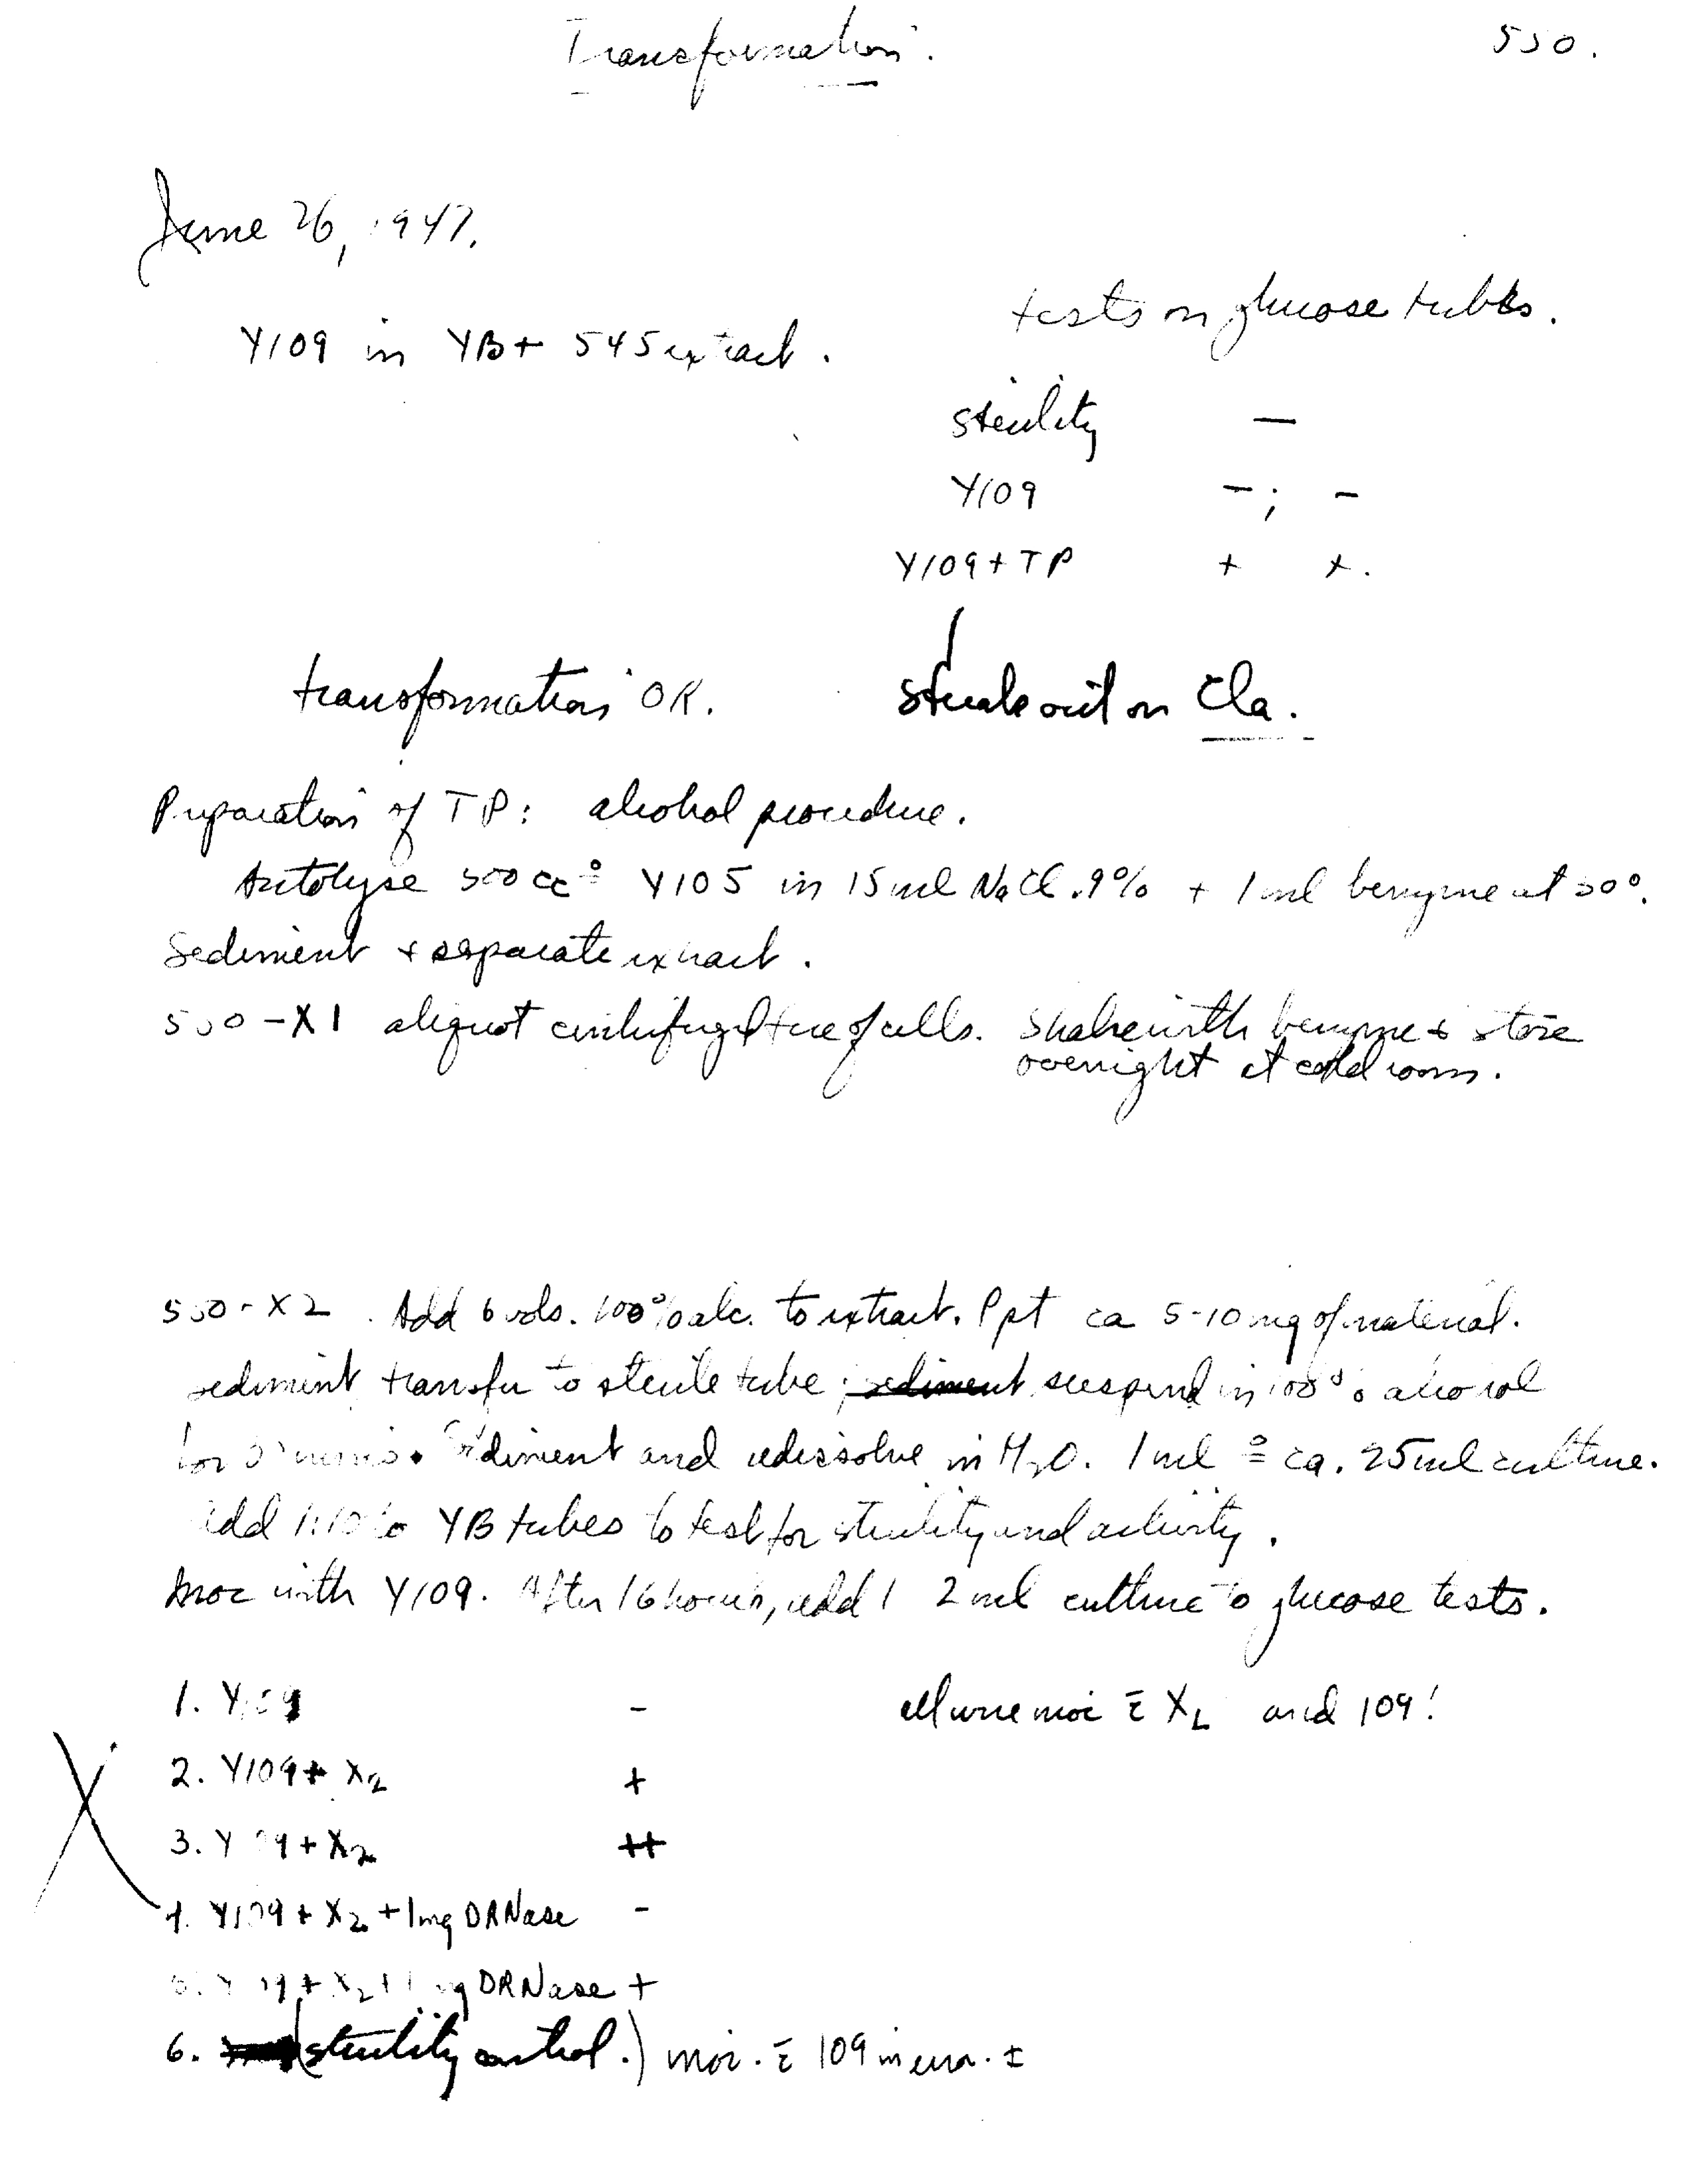 Transformation.
550.
June 26, 1947.
Y109 in YB + 545 extract.
tests on glucose tubes.
sterility —
Y109 - ; -
Y109 + TP + +.
transformation OK.
streak out on Cla.
Preparation of TP: alcohol procedure.
Autolyse 500 cc ≗ Y105 in 15 ml NaCl .9% + 1 ml benzene at 50°.
Sediment + separate extract.
550-X1 aliquot centrifuged free of cells. Shake with benzene + store
overnight at cold room.
550-X2. Add 6 vols. 100% alc. to extract. Ppt ca 5-10 mg of material.
sediment, transfer to sterile tube; sediment suspend in 100% alcohol
for mins. Sediment and redissolve in H2O. 1 ml ≗ ca. 25 ml culture.
Add 1:10 to YB tubes to test for sterility and activity.
Inoc with Y109. After 16 hours, add 2 ml culture to glucose tests.
1. Y109 -
all were inoc c̄ X2 and 109!
2. Y109 + X2 +
3. Y109 + X2 ++
4. Y109 + X2 + 1mg DRNase -
5. Y109 + X2 + 1mg DRNase +
6. (sterility control.) inoc. c̄ 109 in error. ±